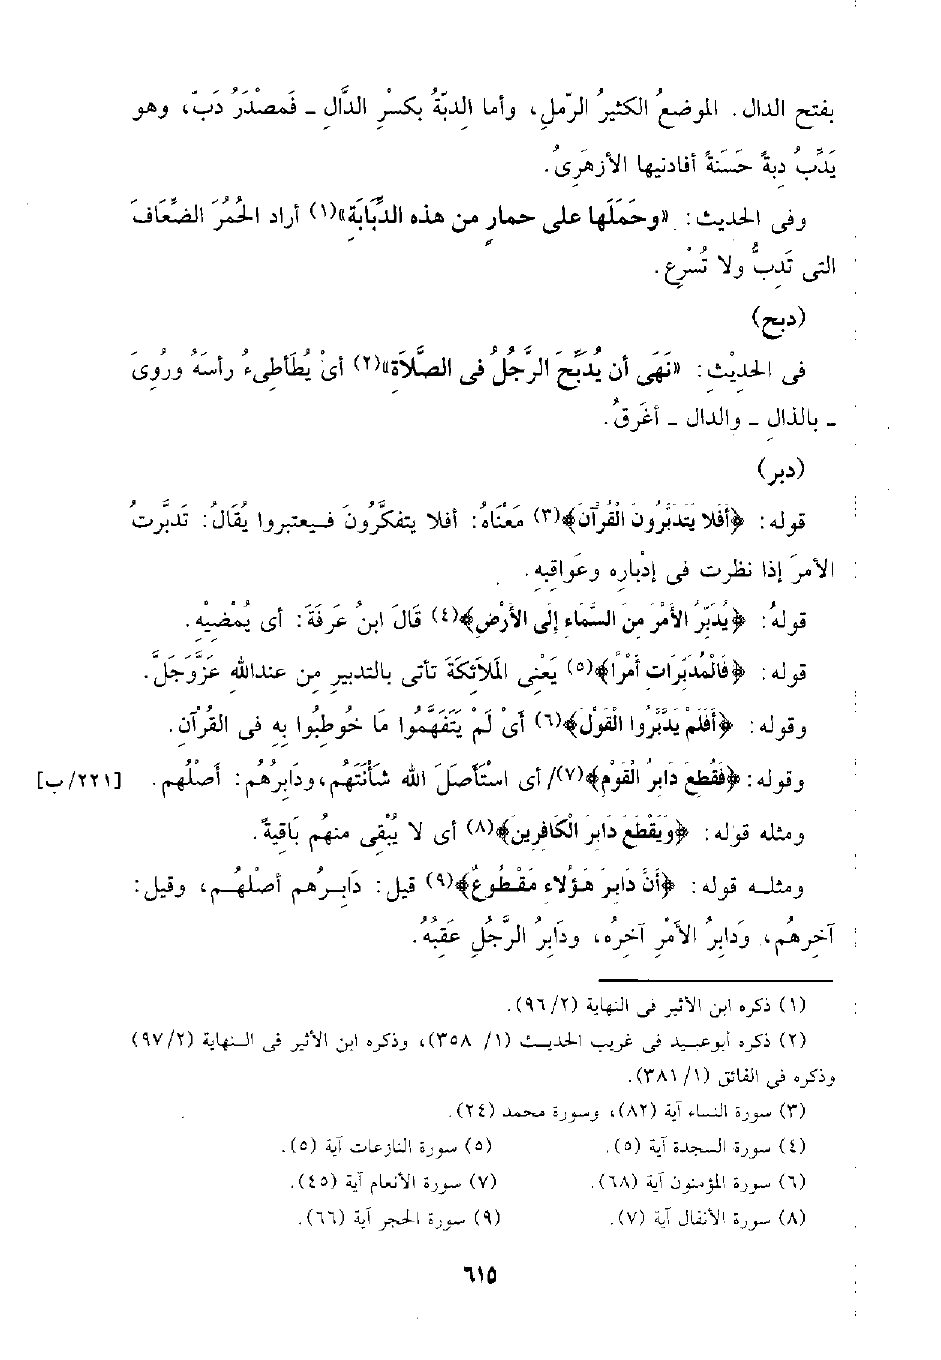 بفتح الدال. الموضعُ الكثيرُ الرّملِ، وأما الدِبّةُ بكسْرِ الدَّالِ ـ فَمصْدَرُ دَبّ، وهو
يَدِّبُ دِبةً حَسَنةً أفادنيها الأزهَرِىُ.
وفى الحديث: «وحَمَلَها على حمارٍ من هذه الدِّبَابَة»(١) أراد الحُمُرَ الضِّعَافَ
التى تَدِبُّ ولا تُسْرِع.
(دبح)
فى الحدِيْثِ: «نَهَى أن يُدَبِّحَ الرَّجُلُ فى الصَّلَاَة»(٢) أىْ يُطَأطِىءُ رأسَهُ ورُوِىَ
ـ بالذالِ ـ والدال ـ أعْرَفُ.
(دبر)
قوله: ﴿أَفَلا يَتَدَبَّرُونَ القُرآنَ﴾(٣) مَعْنَاهُ: أفلا يتفكَّرُونَ فيعتبروا يُقَالُ: تَدبَّرتُ
الأمرَ إذا نظرت فى إدْبارِه وعَواقِبِه.
قولهُ: ﴿يُدَبِّرُ الأَمْرَ مِنَ السَّمَاءِ إِلَى الأَرْضِ﴾(٤) قَالَ ابنُ عَرفَةَ: أى يُمْضِيْهِ.
قوله: ﴿فَالْمُدَبِّرَاتِ أَمْرًا﴾(٥) يَعْنِى المَلَائِكَةَ تأتى بالتدبيرِ مِن عندالله عَزَّوَجَلَّ.
وقوله: ﴿أَفَلَمْ يَدَّبَّرُوا الْقَوْلَ﴾(٦) أىْ لَمْ يَتَفَهَّمُوا مَا خُوطِبُوا بِهِ فى القُرْآنِ.
وقوله: ﴿فَقُطِعَ دَابِرُ الْقَوْمِ﴾(٧)/ أى اسْتَأصَلَ الله شَأنَتَهُم، ودَابِرُهُم: أصْلُهم. [٢٢١/ب]
ومثله قوله: ﴿وَيَقْطَعَ دَابِرَ الْكَافِرِينَ﴾(٨) أى لا يُبْقِى منهُم بَاقِيةً.
ومثله قوله: ﴿أَنَّ دَابِرَ هَؤُلاءِ مَقْطُوعٌ﴾(٩) قيل: دَابِرُهم أصْلُهُم، وقيل:
آخِرهُم، وَدابِرُ الأمْرِ آخِرُه، ودَابِرُ الرَّجُلِ عَقِبُهُ.
(١) ذكره ابن الأثير فى النهاية (٢/ ٩٦).
(٢) ذكره أبوعبيد فى غريب الحديث (١/ ٣٥٨)، وذكره ابن الأثير فى النهاية (٢/ ٩٧)
وذكره فى الفائق (١/ ٣٨١).
(٣) سورة النساء آية (٨٢)، وسورة محمد (٢٤).
(٤) سورة السجدة آية (٥). (٥) سورة النازعات آية (٥).
(٦) سورة المؤمنون آية (٦٨). (٧) سورة الأنعام آية (٤٥).
(٨) سورة الأنفال آية (٧). (٩) سورة الحجر آية (٦٦).
٦١٥